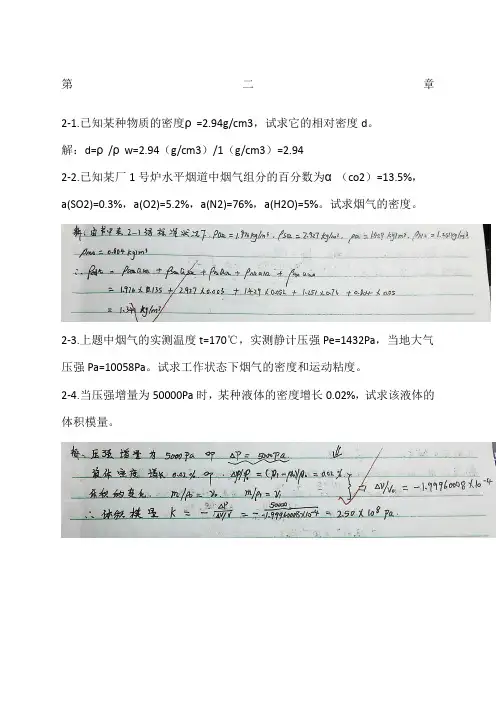 第二章
2-1.已知某种物质的密度ρ =2.94g/cm3，试求它的相对密度 d。
解：d=ρ /ρ w=2.94（g/cm3）/1（g/cm3）=2.94
2-2.已知某厂 1 号炉水平烟道中烟气组分的百分数为α （co2）=13.5%，
a(SO2)=0.3%，a(O2)=5.2%，a(N2)=76%，a(H2O)=5%。试求烟气的密度。
解：由表中表2-1得标准状况下 ρco2 = 1.976 kg/m³，ρso2 = 2.927 kg/m³，ρo2 = 1.429 kg/m³，ρN2 = 1.251 kg/m³
ρH2O = 0.804 kg/m³
= 1.976 × 0.135 + 2.927 × 0.003 + 1.429 × 0.052 + 1.251 × 0.76 + 0.804 × 0.05
kg/m³
2-3.上题中烟气的实测温度 t=170℃，实测静计压强 Pe=1432Pa，当地大气
压强 Pa=10058Pa。试求工作状态下烟气的密度和运动粘度。
2-4.当压强增量为 50000Pa 时，某种液体的密度增长 0.02%，试求该液体的
体积模量。
解、压强增量为 5000Pa 即 ΔP = 5000Pa
液体密度增长 0.02% 即 = 0.02%
体积的变化 m/ρ0 = V0 m/ρ1 = V1 ΔV/V0 = -1.99960008×10-4
∴体积模量 K = - ΔP/ΔV/V = - 50000/-1.99960008×10-4 = 2.50 × 10⁸ Pa.